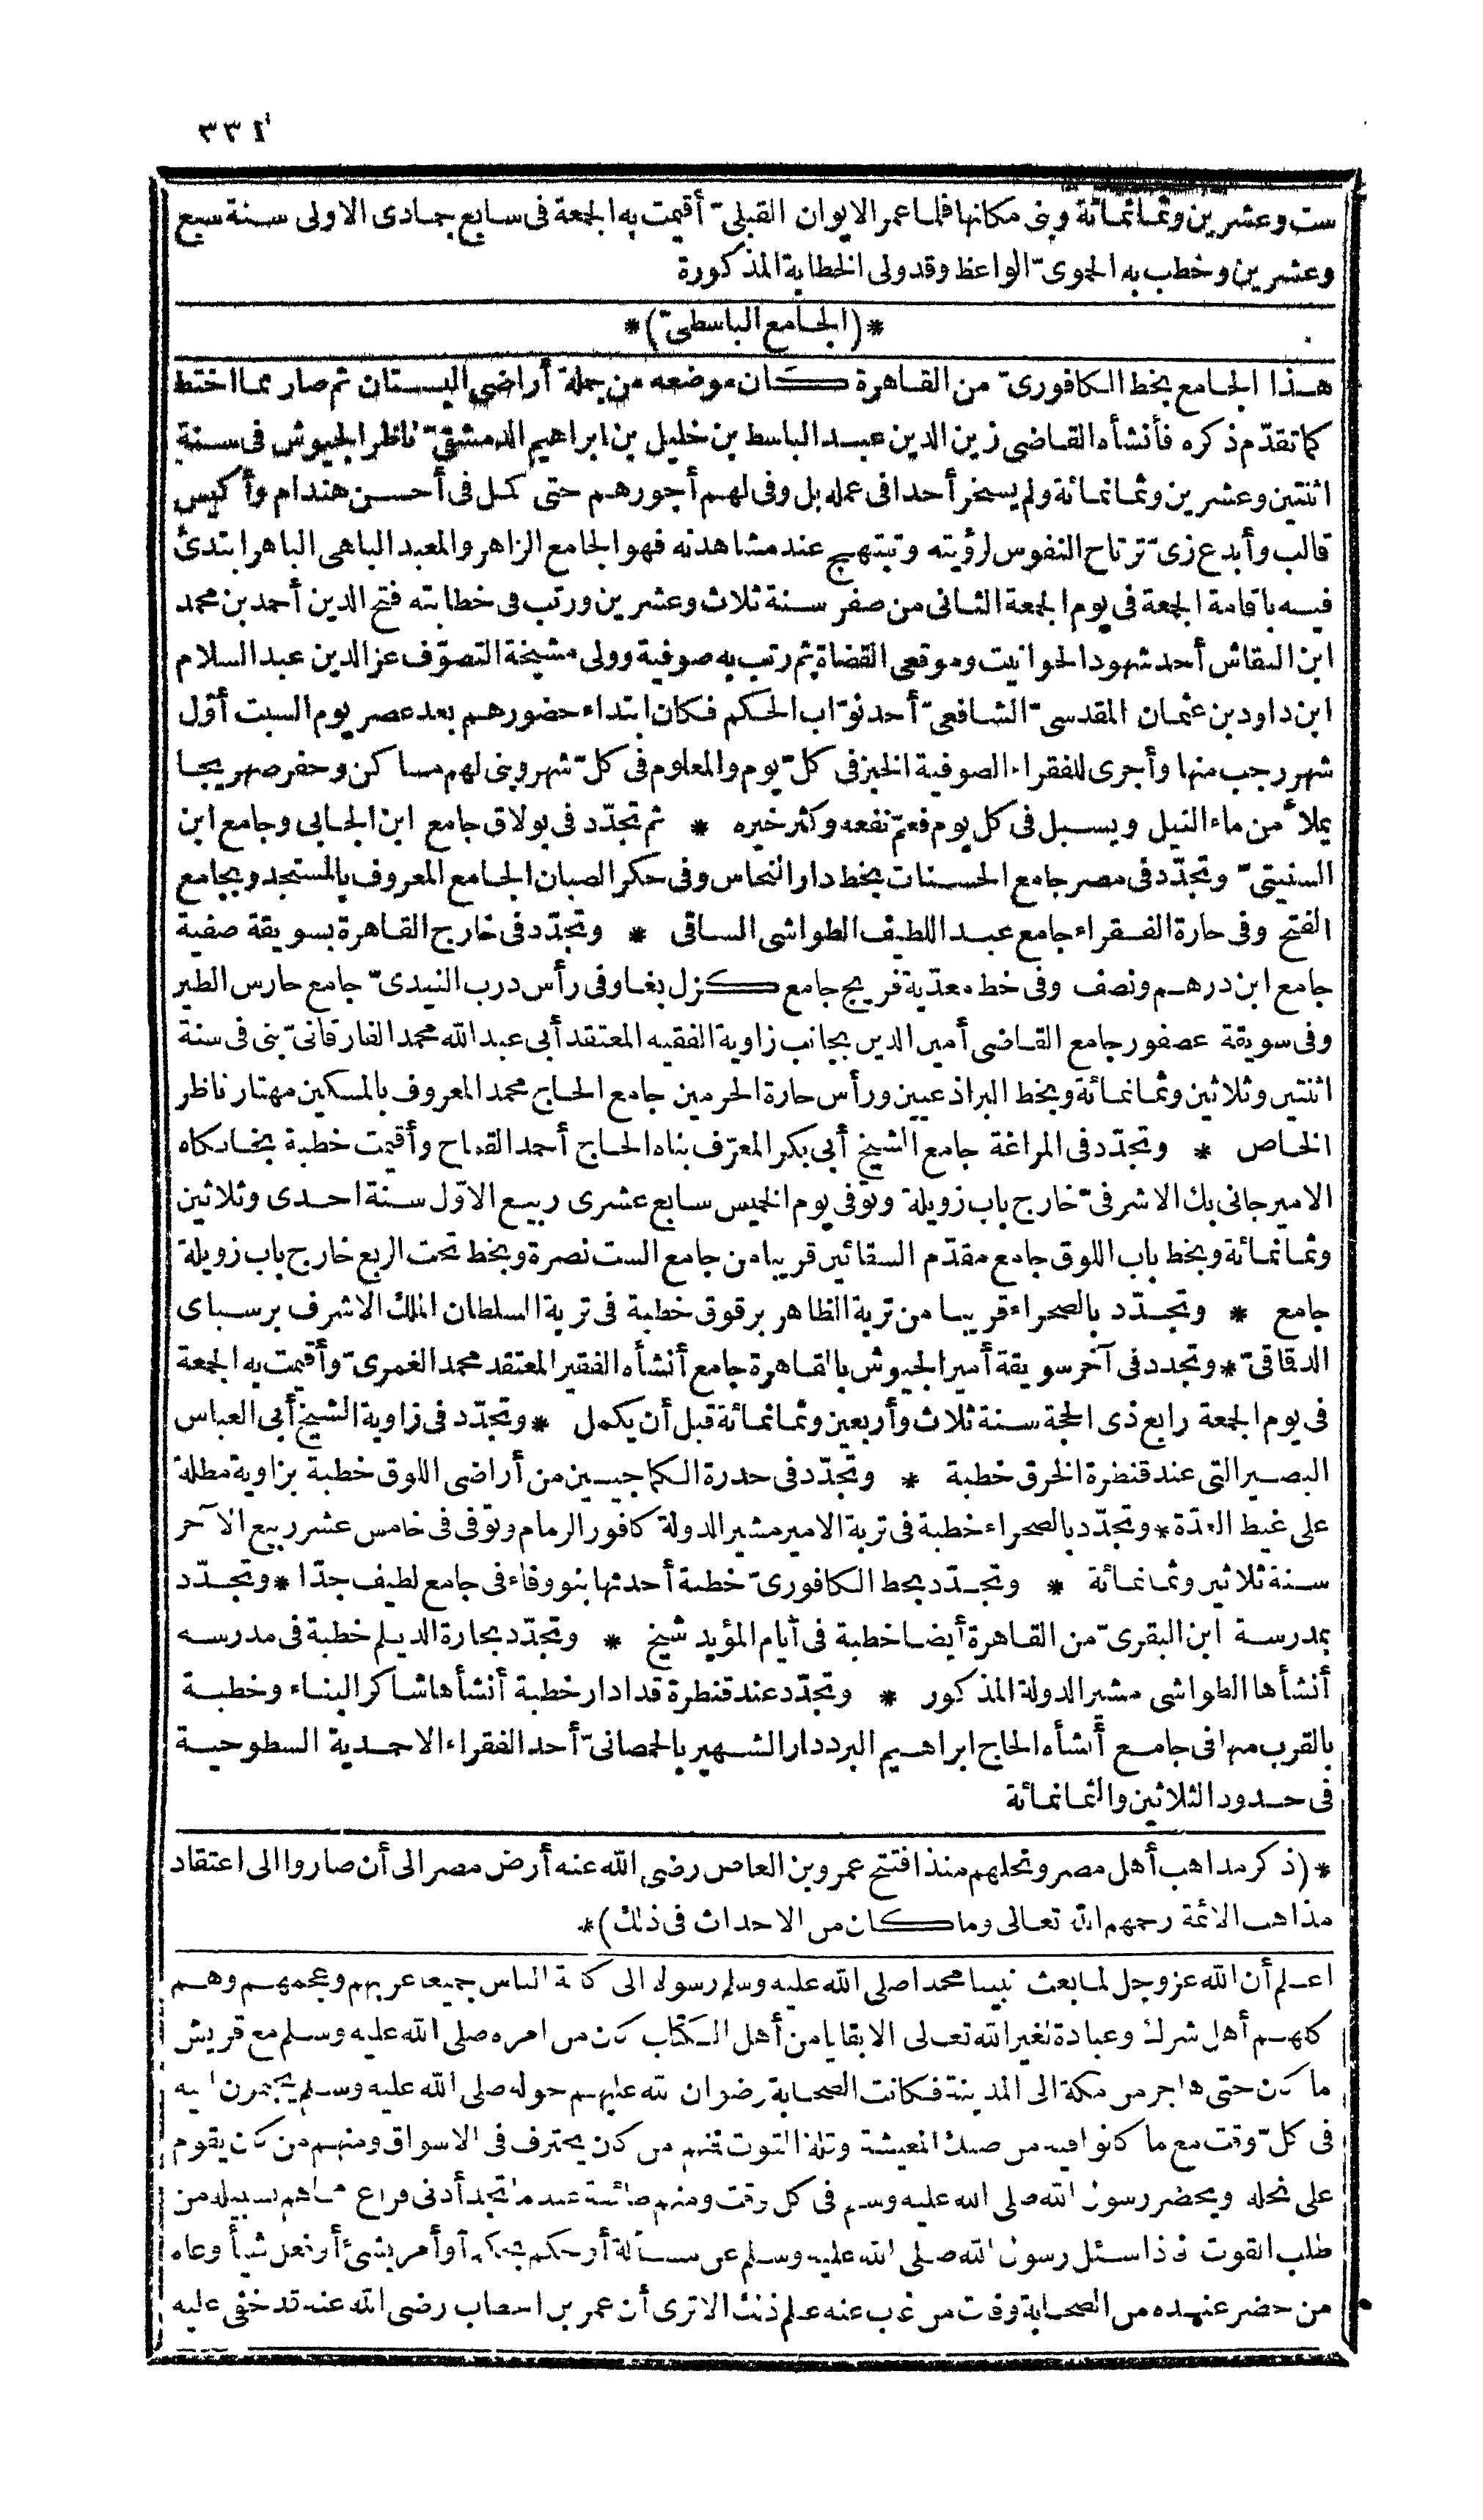 ٣٣١
ست وعشرين وثمانمائة وبنى مكانها فلما عمر الايوان القبلىّ أقيمت به الجمعة فى سابع جمادى الاولى سنة سبع
وعشرين وخطب به الحموىّ الواعظ وقد ولى الخطابة المذكورة
*(الجامع الباسطىّ)*
هذا الجامع بخط الكافورىّ من القاهرة كان موضعه من جملة أراضى البستان ثم صار مما اختط
كما تقدّم ذكره فأنشأه القاضى زين الدين عبد الباسط بن خليل بن ابراهيم الدمشقىّ ناظر الجيوش فى سنة
اثنتين وعشرين وثمانمائة ولم يسخر أحدا فى عمله بل وفى لهم أجورهم حتى كمل فى أحسن هندام وأكيس
قالب وأبدع زىّ ترتاح النفوس لرؤيته وتبتهج عند مشاهدته فهو الجامع الزاهر والمعبد الباهى الباهر ابتدئ
فيه باقامة الجمعة فى يوم الجمعة الثانى من صفر سنة ثلاث وعشرين ورتب فى خطابته فتح الدين أحمد بن محمد
ابن النقاش أحد شهود الحوانيت وموقعى القضاة ثم رتب به صوفية وولى مشيخة التصوّف عز الدين عبد السلام
ابن داود بن عثمان المقدسىّ الشافعىّ أحد نوّاب الحكم فكان ابتداء حضورهم بعد عصر يوم السبت أوّل
شهر رجب منها وأجرى للفقراء الصوفية الخبز فى كلّ يوم والمعلوم فى كلّ شهر وبنى لهم مساكن وحفر صهريجا
يملأ من ماء النيل ويسبل فى كل يوم فعمّ نفعه وكثر خيره * ثم تجدّد فى بولاق جامع ابن الجابى وجامع ابن
السنيتىّ وتجدّد فى مصر جامع الحسنات بخط دار النحاس وفى حكر الصبان الجامع المعروف بالمستجد وبجامع
الفتح وفى حارة الفقراء جامع عبد اللطيف الطواشى الساقى * وتجدّد فى خارج القاهرة بسويقة صفية
جامع ابن درهم ونصف وفى خط معدّية فريج جامع كزل بغا وفى رأس درب النيدىّ جامع حارس الطير
وفى سويقة عصفور جامع القاضى أمير الدين بجانب زاوية الفقيه المعتقد أبى عبد الله محمد الفارقانىّ بنى فى سنة
اثنتين وثلاثين وثمانمائة وبخط البراذعيين ورأس حارة الحرمين جامع الحاج محمد المعروف بالمسكين مهتار ناظر
الخاص * وتجدّد فى المراغة جامع الشيخ أبى بكر المعرّف بناه الحاج أحمد القماح وأقيمت خطبة بخانكاه
الامير جانى بك الاشرفىّ خارج باب زويلة وتوفى يوم الخميس سابع عشرى ربيع الاوّل سنة احدى وثلاثين
وثمانمائة وبخط باب اللوق جامع مقدّم السقائين قريبا من جامع الست نصرة وبخط تحت الربع خارج باب زويلة
جامع * وتجدّد بالصحراء قريبا من تربة الظاهر برقوق خطبة فى تربة السلطان الملك الاشرف برسباى
الدقاقىّ * وتجدد فى آخر سويقة أمير الجيوش بالقاهرة جامع أنشأه الفقير المعتقد محمد الغمرىّ وأقيمت به الجمعة
فى يوم الجمعة رابع ذى الحجة سنة ثلاث وأربعين وثمانمائة قبل أن يكمل * وتجدّد فى زاوية الشيخ أبى العباس
البصير التى عند قنطرة الخرق خطبة * وتجدّد فى حدرة الكماجيين من أراضى اللوق خطبة بزاوية مطلة
على غيط العدّة * وتجدّد بالصحراء خطبة فى تربة الامير مشير الدولة كافور الزمام وتوفى فى خامس عشر ربيع الآخر
سنة ثلاثين وثمانمائة * وتجدّد بخط الكافورىّ خطبة أحدثها بنو وفاء فى جامع لطيف جدّا * وتجدّد
بمدرسة ابن البقرىّ من القاهرة أيضا خطبة فى أيام المؤيد شيخ * وتجدّد بحارة الديلم خطبة فى مدرسة
أنشأها الطواشى مشير الدولة المذكور * وتجدّد عند قنطرة قدادار خطبة أنشأها شاكر البناء وخطبة
بالقرب منها فى جامع أنشأه الحاج ابراهيم البرددار الشهير بالحمصانىّ أحد الفقراء الاحمدية السطوحية
فى حدود الثلاثين والثمانمائة
*(ذكر مذاهب أهل مصر ونحلهم منذ افتتح عمرو بن العاص رضى الله عنه أرض مصر الى أن صاروا الى اعتقاد
مذاهب الائمة رحمهم الله تعالى وما كان من الاحداث فى ذلك)*
اعلم أن الله عز وجل لما بعث نبينا محمدا صلى الله عليه وسلم رسولا الى كافة الناس جميعا عربهم وعجمهم وهم
كلهم أهل شرك وعبادة لغير الله تعالى الا بقايا من أهل الكتاب كان من امره صلى الله عليه وسلم مع قريش
ما كان حتى هاجر من مكة الى المدينة فكانت الصحابة رضوان الله عليهم حوله صلى الله عليه وسلم يجتمعون اليه
فى كلّ وقت مع ما كانوا فيه من ضنك المعيشة وقلة القوت فمنهم من كان يحترف فى الاسواق ومنهم من كان يقوم
على نخله ويحضر رسول الله صلى الله عليه وسلم فى كل وقت ومنهم طائفة عندما تجد أدنى فراغ مما هم بسبيله من
طلب القوت فاذا سئل رسول الله صلى الله عليه وسلم عن مسألة أو حكم بحكم أو أمر بشئ أو فعل شيأ وعاه
من حضر عنده من الصحابة وفات من غاب عنه علم ذلك ألا ترى أن عمر بن الخطاب رضى الله عنه قد خفى عليه